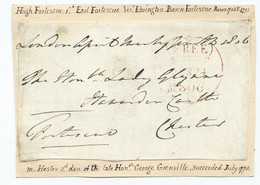 Hugh Fortescue, 1st Earl Fortescue, Visct Ebrington Baron Fortescue
London April twenty 1806
FREE
The Honble Lady Glynne
Hawarden Castle
Fortescue Chester
m. Hester 2d dau of the late Honble George Grenville, succeeded July 1785